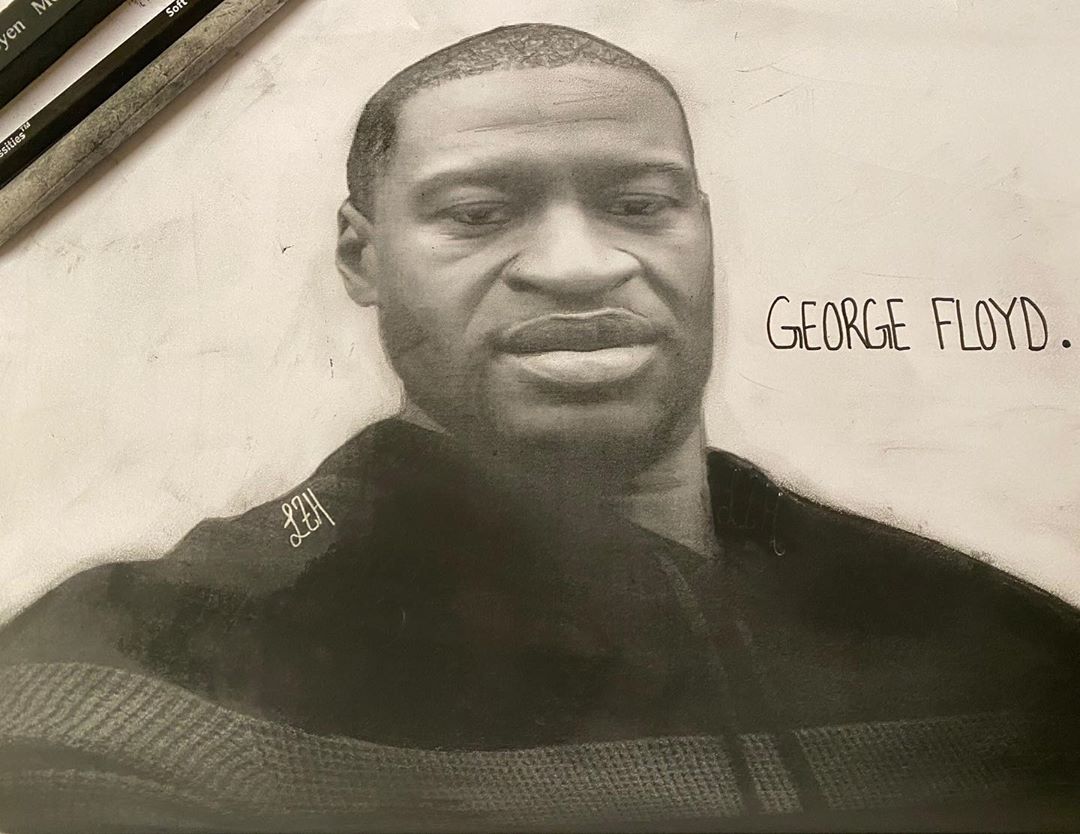 yen M
Soft
ssities™
GEORGE FLOYD.
LZH
LZH